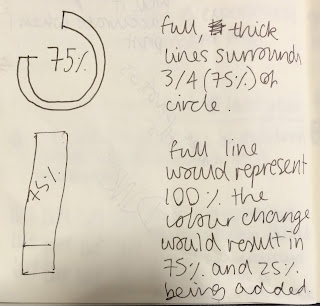 75%
full, thick
lines surrounds
3/4 (75%) of
circle.
75%
full line
would represent
100% the
colour change
would result in
75% and 25%
being added.